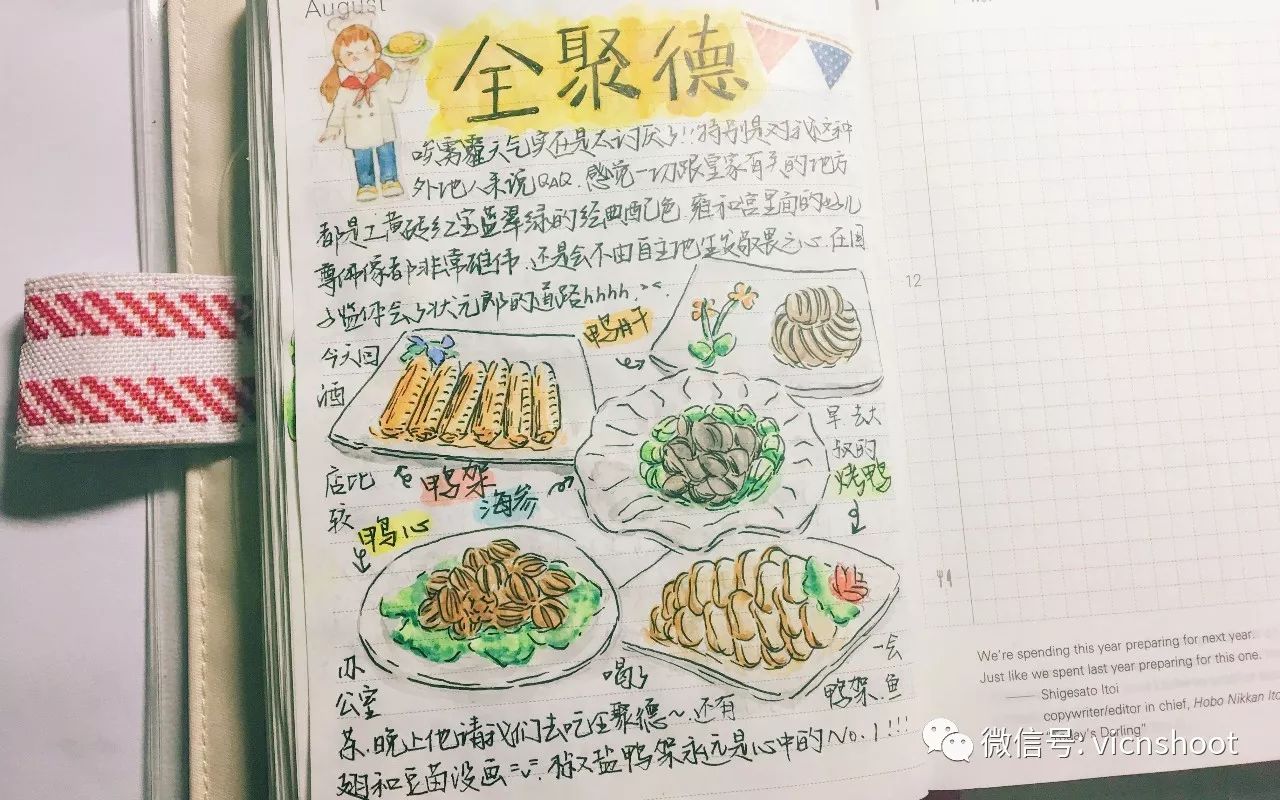 August
全聚德
唉雾霾天气实在是太讨厌了!!特别是对我这种
外地人来说QAQ.感觉一切跟皇家有关的地方
都是工黄砖红宝蓝翠绿的经典配色.雍和宫里面的
尊佛像都非常雄伟.还是会不由自主地生发敬畏之心.在国
子监体会了状元郎的道路hhhh.><.
鸭肝
今天回
酒
早去大
叔的
烤鸭
店比
较
鸭架
海参
鸭心
办
公室
喝了
一会
鸭架.鱼
茶.晚上他请我们去吃全聚德~.还有
翅和豆苗没画=v=.椒盐鸭架永远是心中的No.1!!!
12
We're spending this year preparing for next year.
Just like we spent last year preparing for this one.
—— Shigesato Itoi
copywriter/editor in chief, Hobo Nikkan Ito
"Today's Darling"
微信号: vicnshoot